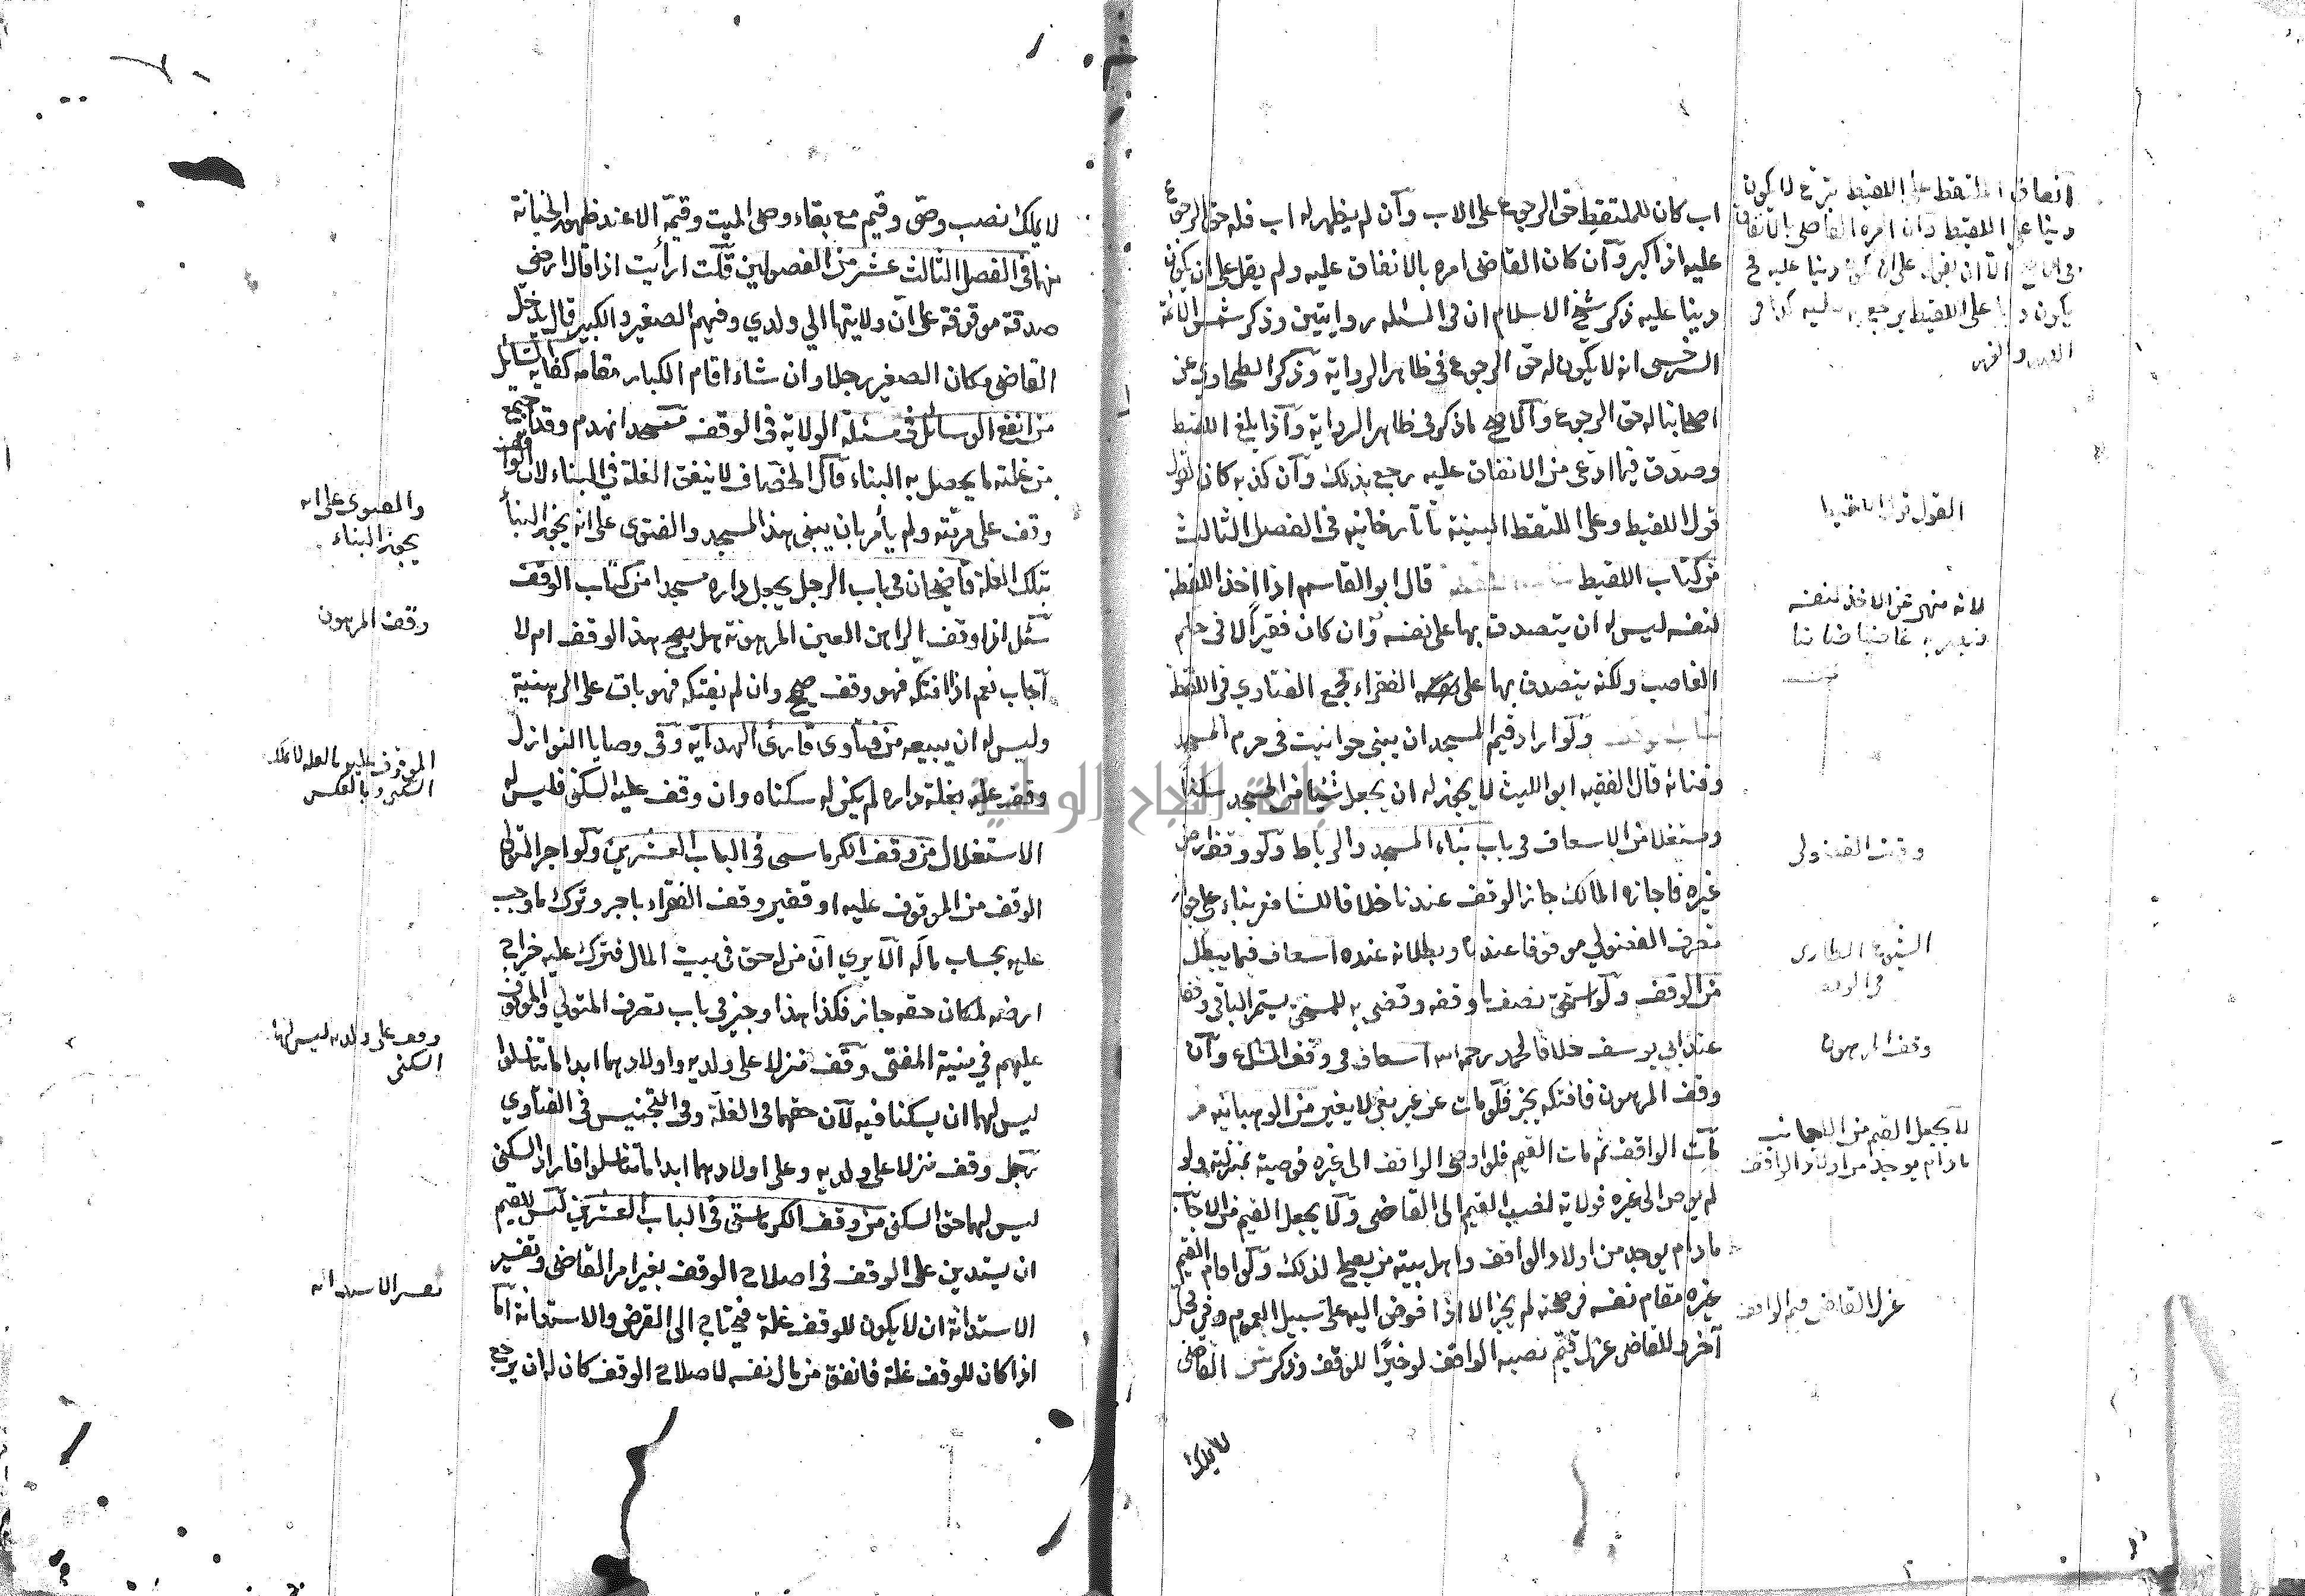 اب كان للملتقط حق الرجوع على الاب وان لم يظهر له اب فله حق الرجوع
عليه اذا كبر وان كان القاضى امره بالانفاق عليه ولم يقل على ان يكون
دينا عليه ذكر شيخ الاسلام ان فى المسئله روايتين وذكر شمس الائمة
السرخسى انه لا يكون له حق الرجوع فى ظاهر الرواية وذكر الطحاوي عن
اصحابنا له حق الرجوع والاصح ما ذكر فى ظاهر الرواية واذا بلغ اللقيط
وصدق فيما ادعى من الانفاق عليه رجع بذلك وان كذبه كان القول
قول اللقيط وعلى الملتقط البينة تاتارخانيه فى الفصل الثالث
من كتاب اللقيط قال ابو القاسم اذا اخذ اللقطة
لنفسه ليس له ان يتصدق بها على نفسه وان كان فقيرا لا فى حكم
الغاصب ولكنه يتصدق بها على الفقراء مجمع الفتاوي فى اللقطة
ولو اراد قيم المسجد ان يبنى حوانيت فى حرم المسجد
وفنائه قال الفقيه ابو الليث لا يجوز له ان يجعل شيئا من المسجد سكنا
ومستغلا من الاسعاف فى باب بناء المسجد والرباط ولو وقف ارض
غيره فاجازه المالك جاز الوقف عندنا خلافا للشافعى بناء على جواز
تصرف الفضولي موقوفا عندنا وبطلانه عنده اسعاف فيما يبطل
من الوقف ولو استحق نصف ما وقفه وقضى به للمستحق يستمر الباقى وقفا
عند ابي يوسف خلافا لمحمد رحمه الله اسعاف فى وقف المشاع وان
وقف المرهون فافتكه يجز فلو مات عن غير يفى لا يغير من الوهبانيه
مات الواقف ثم مات القيم فلو اوصى الواقف الى غيره فوصيه بمنزلته ولو
لم يوص الى غيره فولاية نصب القيم الى القاضى ولا يجعل القيم من الاجانب
ما دام يوجد من اولاد الواقف واهل بيته من يصلح لذلك ولو اقام القيم
غيره مقام نفسه فى صحته لم يجز الا اذا فوض اليه على سبيل العموم وفى محل
آخر وللقاضى عزل قيم نصبه الواقف لو خيرا للوقف وذكر القاضى
لا يملك
القول قول
لانه منهى عن الاخذ لنفسه
وقف الفضولى
الشيوع الطارى
وقف المرهون
لا يجعل القيم من الاجانب
ما دام يوجد من اولاد الواقف
عزل القاضى قيم الواقف
لا يملك نصب وصى وقيم مع بقاء وصى الميت وقيمه الا عند ظهور الخيانة
منهما فى الفصل الثالث عشر من الفصولين قلت ارأيت اذا قال ارضى
صدقة موقوفة على ان ولايتها الي ولدي وفيهم الصغير والكبير قال يدخل
القاضى مكان الصغير رجلا وان شاء اقام الكبار مقامه كفاية السائل
من انفع الوسائل فى مسئلة الولاية فى الوقف مسجد انهدم وقد اجتمع
من غلته ما يحصل به البناء قال الخصاف لا ينفق الغلة في البناء لان الواقف
وقف على مرمته ولم يأمر بان يبنى هذا المسجد والفتوى على انه يجوز البنأ
بتلك الغلة قاضيخان فى باب الرجل يجعل داره مسجدا من كتاب الوقف
سئل اذا وقف الراهن العين المرهونة هل يصح هذا الوقف ام لا
اجاب نعم اذا افتكه فهو وقف صحيح وان لم يفتكه فهو باق على الرهنية
وليس له ان يبيعه من فتاوى قارئ الهداية وفى وصايا النوازل
وقف عليه بغلة داره لم يكن له سكناه وان وقف عليه السكنى فليس له
الاستغلال من وقف الكرماسى فى الباب العشرين ولو اجر المتولى
الوقف من الموقوف عليه او فقير وقف الفقراء باجر وترك ما وجب
عليه بحساب ماله الا يرى ان من له حق فى بيت المال فترك عليه خراج
ارضه لمكان حقه جاز فكذا هذا وجيز فى باب تصرف المتولي والموقوف
عليهم في منية المفتى وقف منزلا على ولديه واولادهما ابدا ما تناسلوا
ليس لهما ان يسكنا فيه لان حقهما فى الغلة وفى التجنيس فى الفتاوي
رجل وقف منزلا على ولديه وعلى اولادهما ابدا ما تناسلوا فاراد السكنى
ليس لهما حق السكنى من وقف الكرماستى فى الباب العشرين ليس للقيم
ان يستدين على الوقف فى اصلاح الوقف بغير امر القاضى وتفسير
الاستدانة ان لا يكون للوقف غلة فيحتاج الى القرض والاستدانة اما
اذا كان للوقف غلة فانفق من مال نفسه لاصلاح الوقف كان له ان يرجع
والفتوى على انه
يجوز البناء
وقف المرهون
الموقوف عليه بالغله لا يملك
السكنى وبالعكس
وقف على ولديه ليس لهما
السكنى
تفسير الاستدانه
جامعة النجاح الوطنية